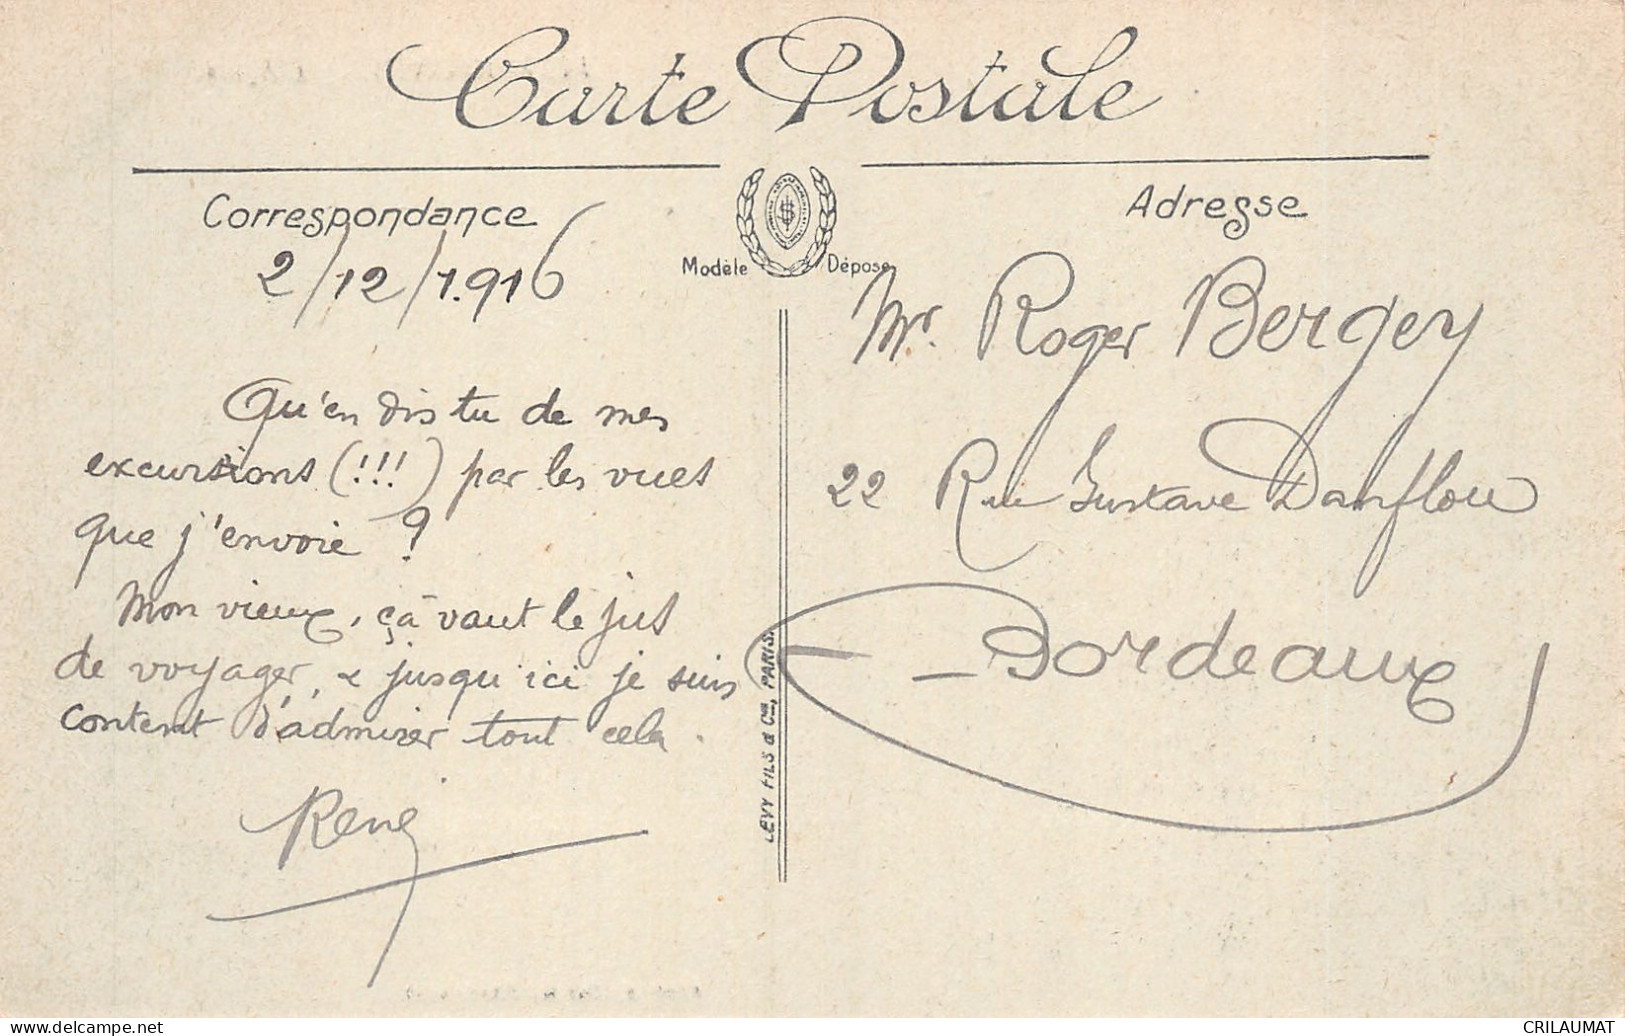 Carte Postale
Correspondance
Adresse
Modèle Déposé
2/12/1.916
Qu'en dis tu de mes
excursions (!!!) par les vues
que j'envoie ?
Mon vieux, çà vaut le jus
de voyager, & jusqu'ici je suis
content d'admirer tout cela.
René
LEVY FILS & Cie, PARIS.
Mr. Roger Bergey
22 Rue Gustave Danflou
- Bordeaux
delcampe.net
CRILAUMAT